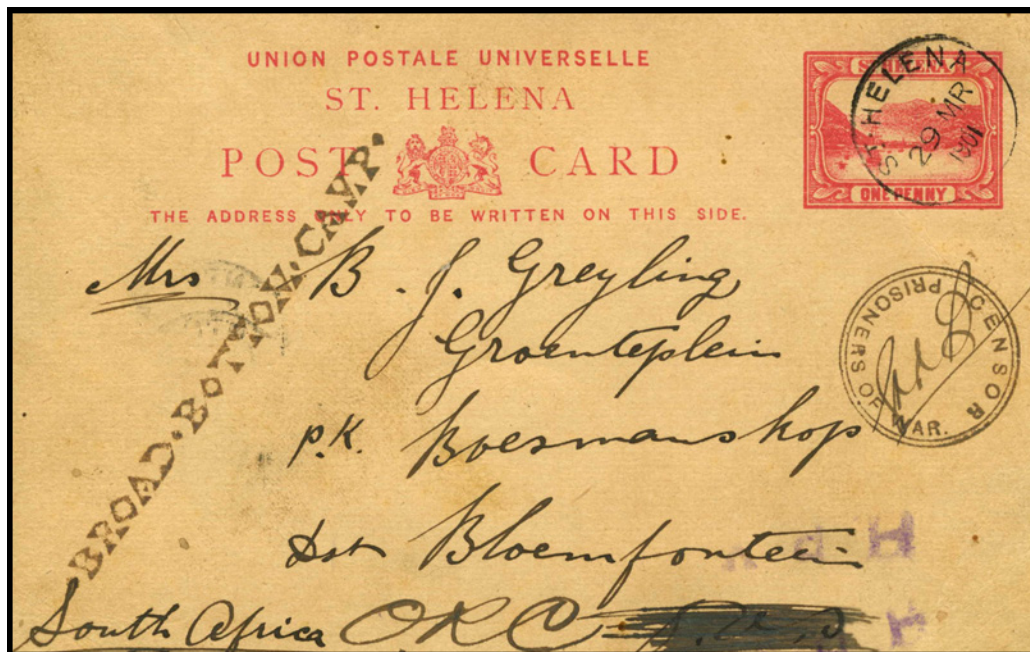 UNION POSTALE UNIVERSELLE
ST. HELENA
POST CARD
THE ADDRESS ONLY TO BE WRITTEN ON THIS SIDE.
ST. HELENA
ONE PENNY
ST. HELENA
29 MR
1901
BROAD.BOTTOM.CAMP.
Mrs B. J. Greyling
Groenteplein
P.K. Boesmanskop
Dst Bloemfontein
South Africa ORC
CENSOR
PRISONERS OF WAR.